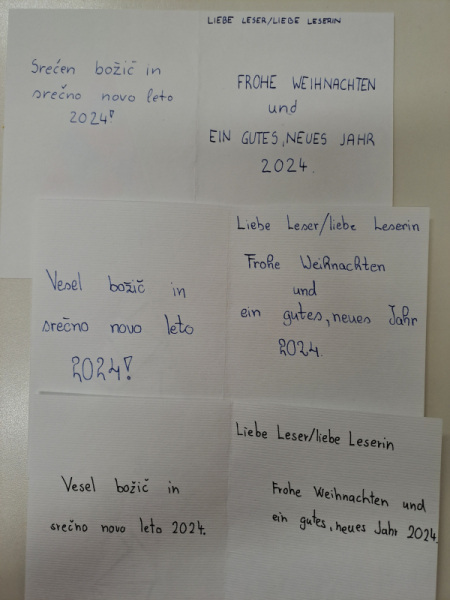 Srečen božič in
srečno novo leto
2024!
LIEBE LESER/LIEBE LESERIN
FROHE WEIHNACHTEN
und
EIN GUTES, NEUES JAHR
2024.
Vesel božič in
srečno novo leto
2024!
Liebe Leser/liebe Leserin
Frohe Weihnachten
und
ein gutes, neues Jahr
2024.
Vesel božič in
srečno novo leto 2024.
Liebe Leser/liebe Leserin
Frohe Weihnachten und
ein gutes, neues Jahr 2024.